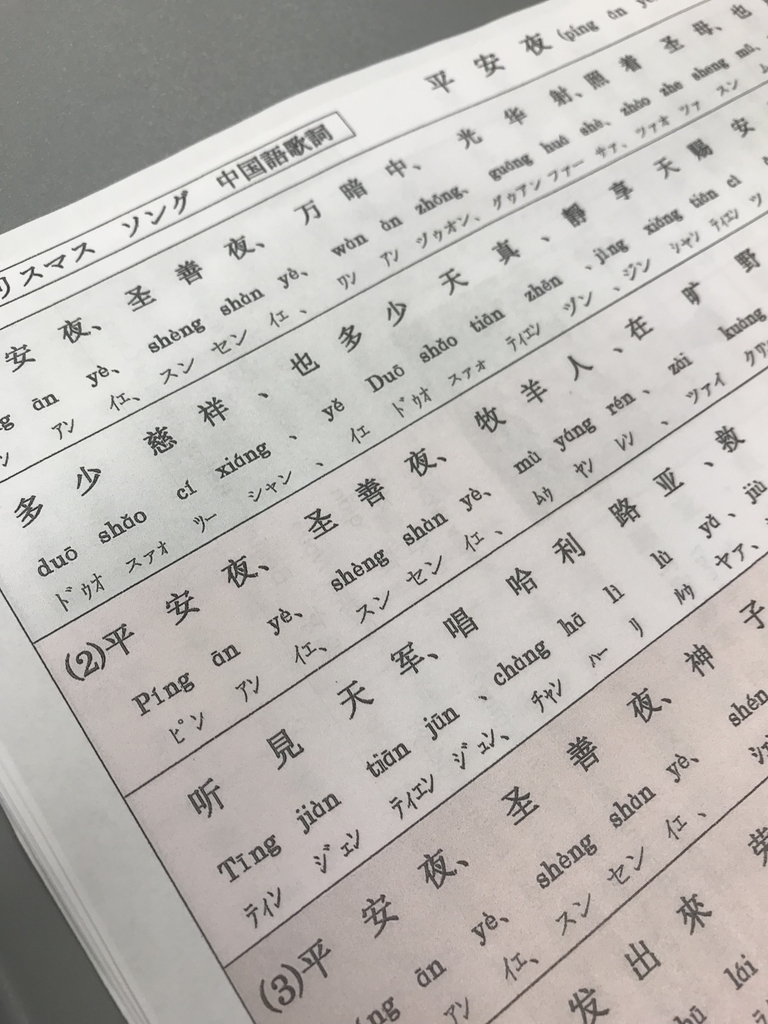 リスマス ソング 中国語歌詞 平安夜(píng ān
安夜、圣善夜、万暗中、光华射、照着圣母、也
ān yè、shèng shàn yè、wàn àn zhōng、guāng huá shè、zhào zhe shèng mǔ、
アン イエ、スン セン イエ、ワン アン ヅゥオン、グゥアン ファー チァ、ツァオ ヅァ スン ム
多少慈祥、也多少天真、靜享天赐安
duō shǎo cí xiáng、yě Duō shǎo tiān zhēn、jìng xiǎng tiān cì
ドゥオ スァオ ツー シャン、イエ ドゥオ スァオ ティエン ヅン、ジン シャン ティエン ツ
(2)平安夜、圣善夜、牧羊人、在旷野
Píng ān yè、shèng shàn yè、mù yáng rén、zài kuàng
ピン アン イエ、スン セン イエ、ムゥ ヤン レン、ツァイ クワン
听見天军、唱哈利路亚、救
Tīng jiàn tiān jūn、chàng hā lì lù yǎ、jiù
ティン ジェン ティエン ジュン、チャン ハー リ ルゥ ヤア、
(3)平安夜、圣善夜、神子
ān yè、shèng shàn yè、shén
アン イエ、スン セン イエ、
发出來荣
lái